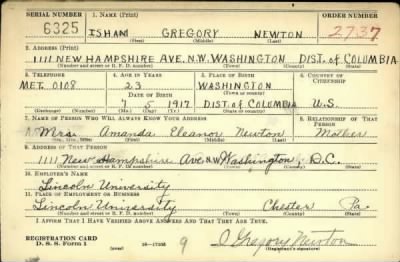 SERIAL NUMBER 1. Name (Print) ORDER NUMBER
6325 ISHAM GREGORY NEWTON 2737
(First) (Middle) (Last)
2. Address (Print)
1111 NEW HAMPSHIRE AVE. N.W. WASHINGTON DIST. of COLUMBIA
(Number and street or R. F. D. number) (Town) (County) (State)
3. Telephone 4. Age in Years 5. Place of Birth 6. Country of Citizenship
MET. 0108 23 WASHINGTON
Date of Birth (Town or county)
7 5 1917 DIST. of COLOMBIA U.S.
(Exchange) (Number) (Mo.) (Day) (Yr.) (State or country)
7. Name of Person Who Will Always Know Your Address 8. Relationship of That Person
Mrs. Amanda Eleanor Newton Mother
(Mr., Mrs., Miss) (First) (Middle) (Last)
9. Address of That Person
1111 New Hampshire Ave N.W. Washington D.C.
(Number and street or R. F. D. number) (Town) (County) (State)
10. Employer's Name
Lincoln University
11. Place of Employment or Business
Lincoln University Chester Pa.
(Number and street or R. F. D. number) (Town) (County) (State)
I Affirm That I Have Verified Above Answers and That They Are True.
REGISTRATION CARD
D. S. S. Form 1 (over) 9 I Gregory Newton
(Registrant's signature)